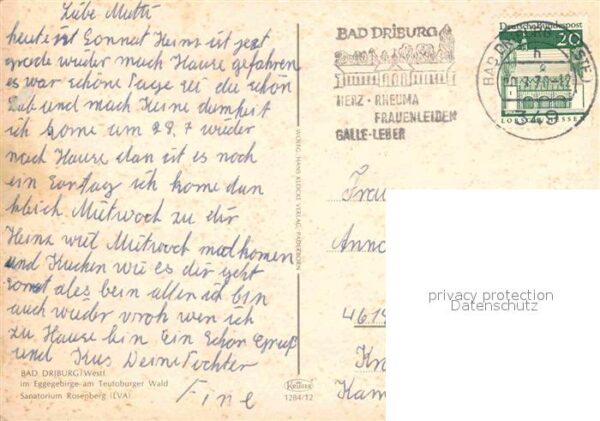 Liebe Mutti
heute ist Sonnat Heinz ist jezt
grade wieder nach Hause gefahren
es war schöne Tage sei die schön
Lub und nach Heine dampeit
ich kome um 29.7 wieder
nach Hause dan ist es noch
ein Sontag ich kome dan
kleich Mittwoch zu dir
Heinz wiel Mittwoch madkomen
und Kucken wie es dir geht
sonst ales bein allen ich bin
auch wieder vroh wen ich
zu Hause bin Ein Schön Gruß
und Kus Deine Tochter
Fine
BAD DRIBURG/Westf.
im Eggegebirge am Teutoburger Wald
Sanatorium Rosenberg (LVA)
VERLG. HANS KLOCKE VERLAG, PADERBORN
Krüger
1284/12
BAD DRIBURG
HERZ · RHEUMA
FRAUENLEIDEN
GALLE-LEBER
Deutsche Bundespost
20
LORSCH/HESSEN
BAD DRIBURG (WESTF)
349
Frau
Anna
4619
Kr
Kam
privacy protection
Datenschutz